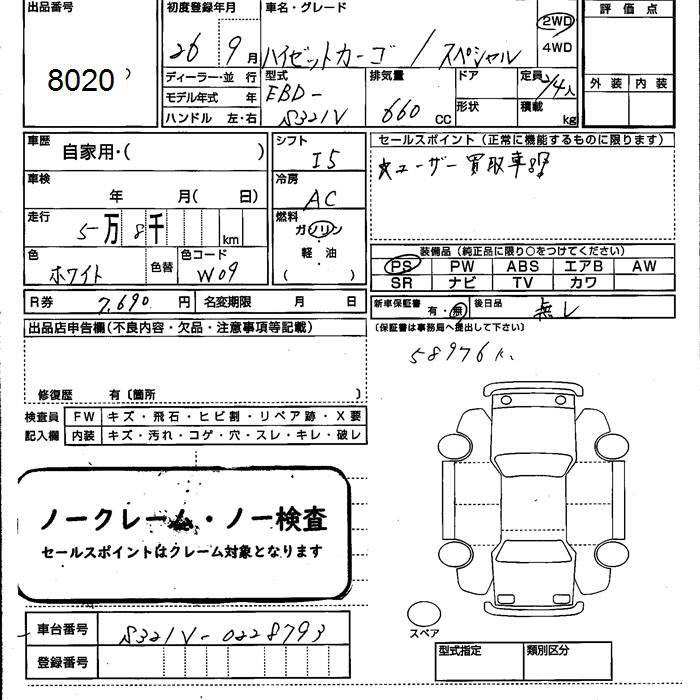 出品番号
8020
初度登録年月
26 9月
車名・グレード
ハイゼットカーゴ / スペシャル
2WD
4WD
評価点
外装 内装
ディーラー・並行
モデル年式 年
ハンドル 左・右
型式
EBD-
S321V
排気量
660 CC
ドア
形状
定員
2/4人
積載
kg
車歴
自家用・( )
シフト
I5
セールスポイント(正常に機能するものに限ります)
☆ユーザー買取車
車検
年 月( 日)
冷房
AC
走行
5万 8千 km
燃料
ガソリン
軽・油
( )
色
ホワイト
色替
色コード
W09
装備品(純正品に限り○をつけてください)
PS PW ABS エアB AW
SR ナビ TV カワ
R券 7,690円
名変期限 月 日
新車保証書
有・無
後日品
無し
(保証書は事務局へ提出して下さい)
58976K
出品店申告欄(不良内容・欠品・注意事項等記載)
修復歴 有〔箇所 〕
検査員
記入欄
FW キズ・飛石・ヒビ割・リペア跡・X要
内装 キズ・汚れ・コゲ・穴・スレ・キレ・破レ
ノークレーム・ノー検査
セールスポイントはクレーム対象となります
車台番号
S321V-0228793
登録番号
スペア
型式指定
類別区分